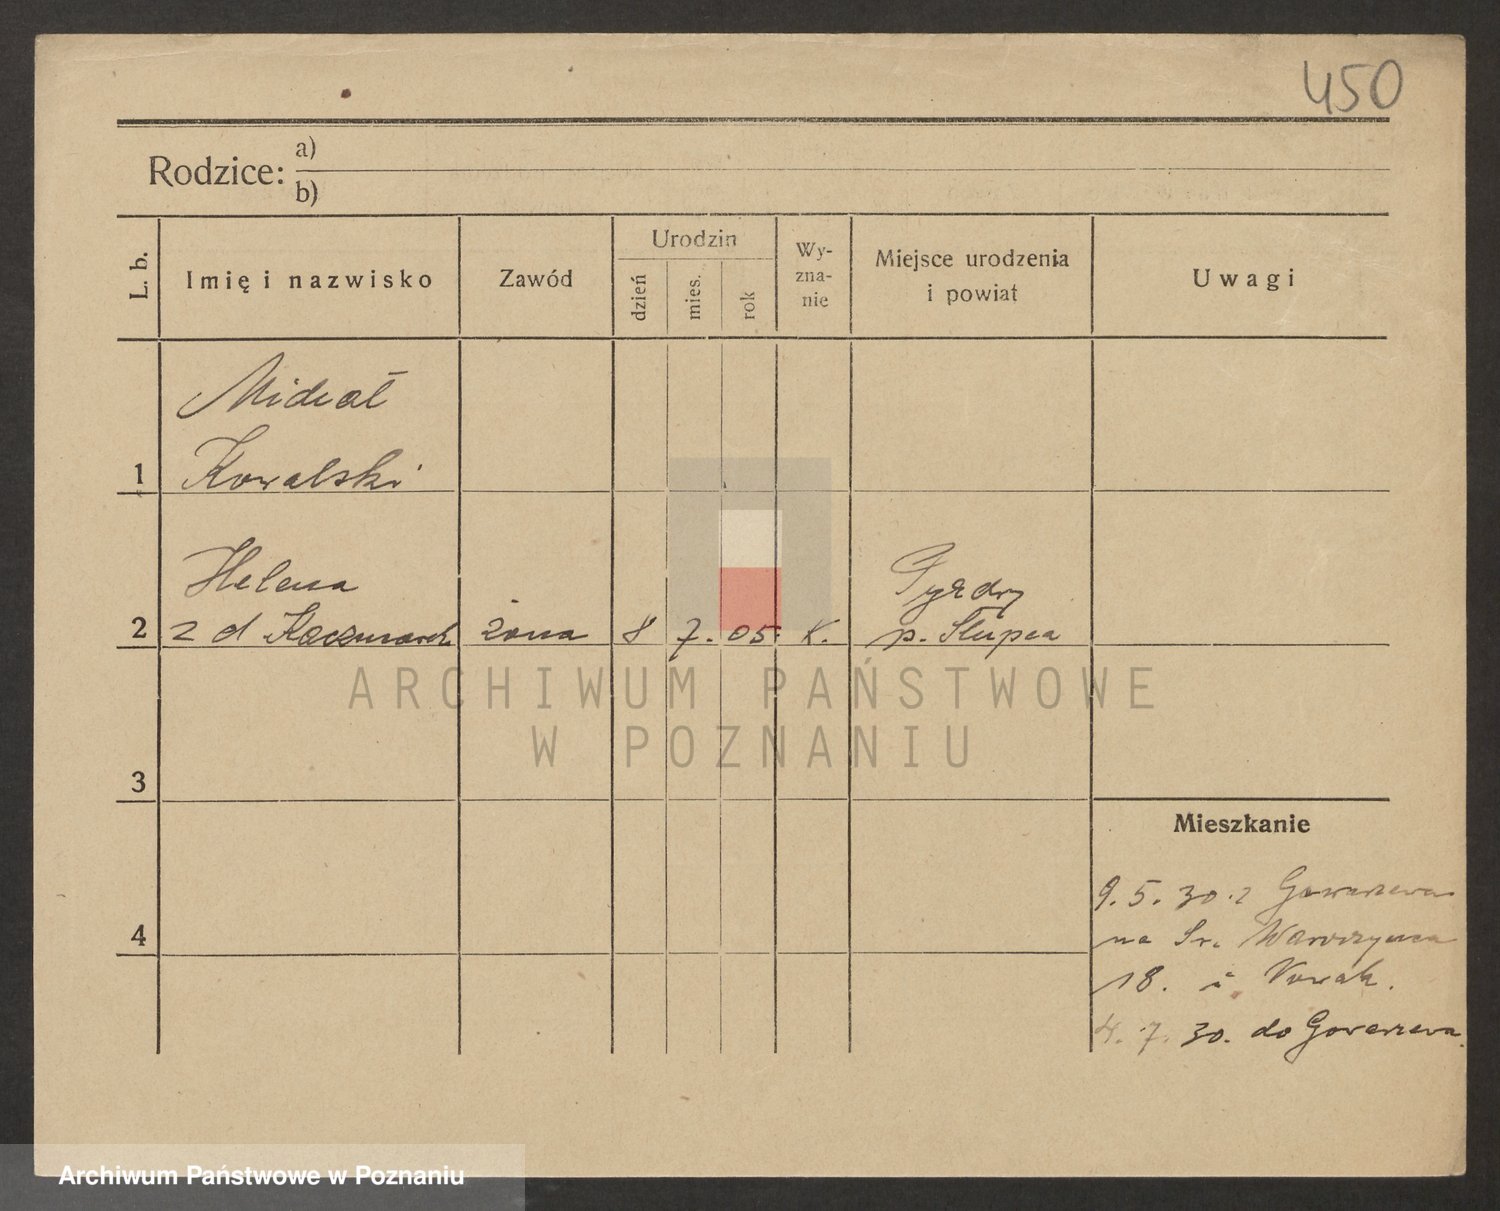 450
Rodzice: a)
b)
L. b.
Imię i nazwisko
Zawód
Urodzin
dzień
mies.
rok
Wy-
zna-
nie
Miejsce urodzenia
i powiat
Uwagi
Michał
1 Kowalski
Helena
2 z d Kaczmarek żona 8 7. 05. K.
Pyzdry
p. Słupca
ARCHIWUM PAŃSTWOWE
W POZNANIU
3
Mieszkanie
9. 5. 30. z Gowarzewa
4
na Św. Wawrzyńca
18. Nowak.
4. 7. 30. do Gowarzewa.
Archiwum Państwowe w Poznaniu